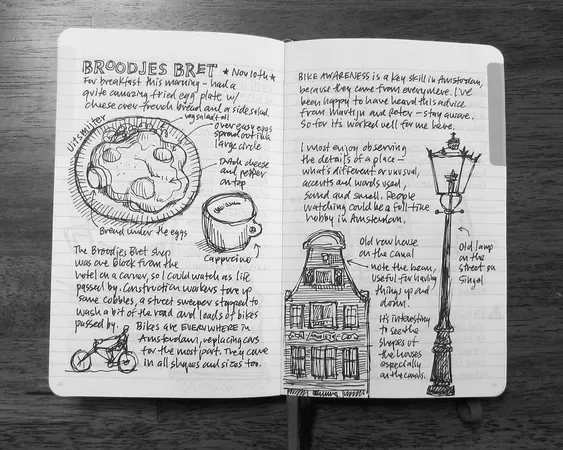 BROODJES BRET ★ Nov 10th ★
For breakfast this morning - had a
quite amazing fried egg plate w/
cheese over french bread and a side salad.
Uitsmijter
veg salad all
over easy eggs
spread out in a
large circle
Dutch cheese
and pepper
on top
Bread under the eggs
Cappuccino
The Broodjes Bret shop
was one block from the
hotel on a corner, so I could watch as life
passed by. Construction workers tore up
some cobbles, a street sweeper stopped to
wash a bit of the road and loads of bikes
passed by.
Bikes are EVERYWHERE in
Amsterdam, replacing cars
for the most part. They come
in all shapes and sizes too.
BIKE AWARENESS is a key skill in Amsterdam,
because they come from everywhere. I've
been happy to have heard this advice
from Martijn and Peter - stay aware.
So far it's worked well for me here.
I most enjoy observing
the details of a place -
what's different or unusual,
accents and words used,
sound and smell. People
watching could be a full-time
hobby in Amsterdam.
Old row house
on the canal
note the beam,
useful for having
things up and
down.
It's interesting
to see the
shapes of
the houses
especially
on the canals.
Old lamp
on the
street on
Singel